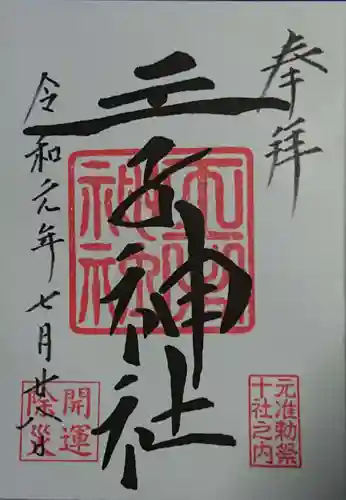 奉拝
王子神社
令和元年七月廿八日
元准勅祭
十社之内
開運
除災